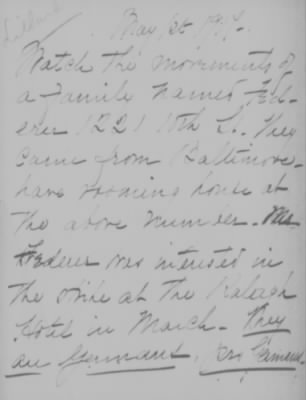 May 1st 1917.
Watch the movements of
a family named Fed-
erer 1221 10th St. They
came from Baltimore-
have rooming house at
the above number. Mr
Federer was interested in
the strike at the Raleigh
Hotel in March - They
are Germans, pro German.